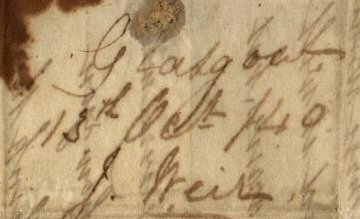 Glasgow
13th Oct /40
J. Weir